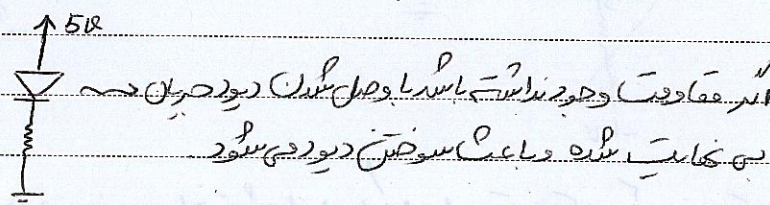 5v
اگر مقاومت وجود نداشته باشد با وصل شدن دیود جریان
بی نهایت شده و باعث سوختن دیود می شود.